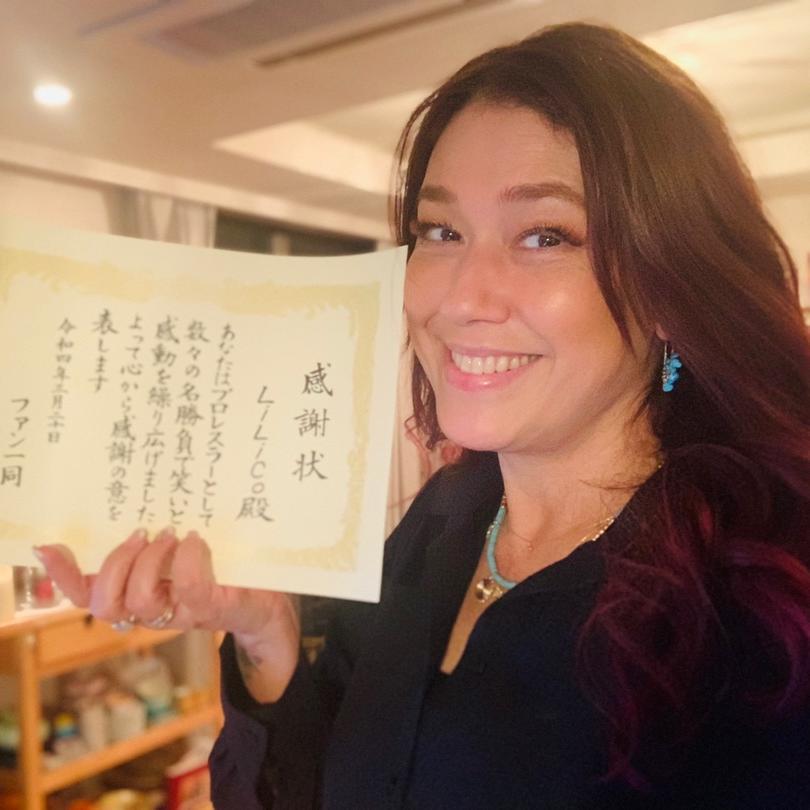 感謝状
LiLiCo殿
あなたはプロレスラーとして
数々の名勝負で笑いと
感動を繰り広げました
よって心から感謝の意を
表します
令和四年三月二十日
ファン一同